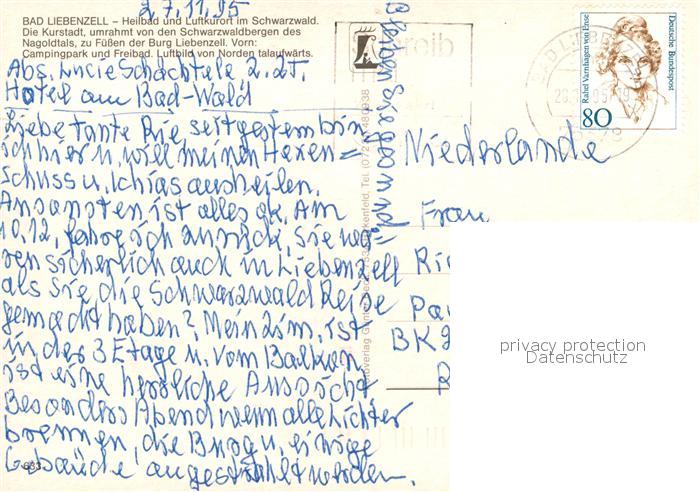 27.11.95
BAD LIEBENZELL – Heilbad und Luftkurort im Schwarzwald.
Die Kurstadt, umrahmt von den Schwarzwaldbergen des
Nagoldtals, zu Füßen der Burg Liebenzell. Vorn:
Campingpark und Freibad. Luftbild von Norden talaufwärts.
Abs. Lucie Schächtele z. Zt.
Hotel am Bad-Wald
Liebe Tante Rie, seit gestern bin
ich hier u. will meinen Hexen=
schuss u. Ichias ausheilen.
Ansonsten ist alles ok. Am
10.12. fahre ich zurück. Sie wa=
ren sicherlich auch in Liebenzell
als Sie die Schwarzwald Reise
gemacht haben? Mein Zim. ist
in der 3 Etage u. vom Balkon
ist eine herrliche Aussicht
Besonders Abend wenn alle Lichter
brennen, die Burg u. einige
Gebäude angestrahlt werden.
633
Bleiben Sie gesund
Niederlande
Frau
Ri
Pa
BK
R
Rahel Varnhagen von Ense
Deutsche Bundespost
80
BAD LIEBENZELL
privacy protection
Datenschutz